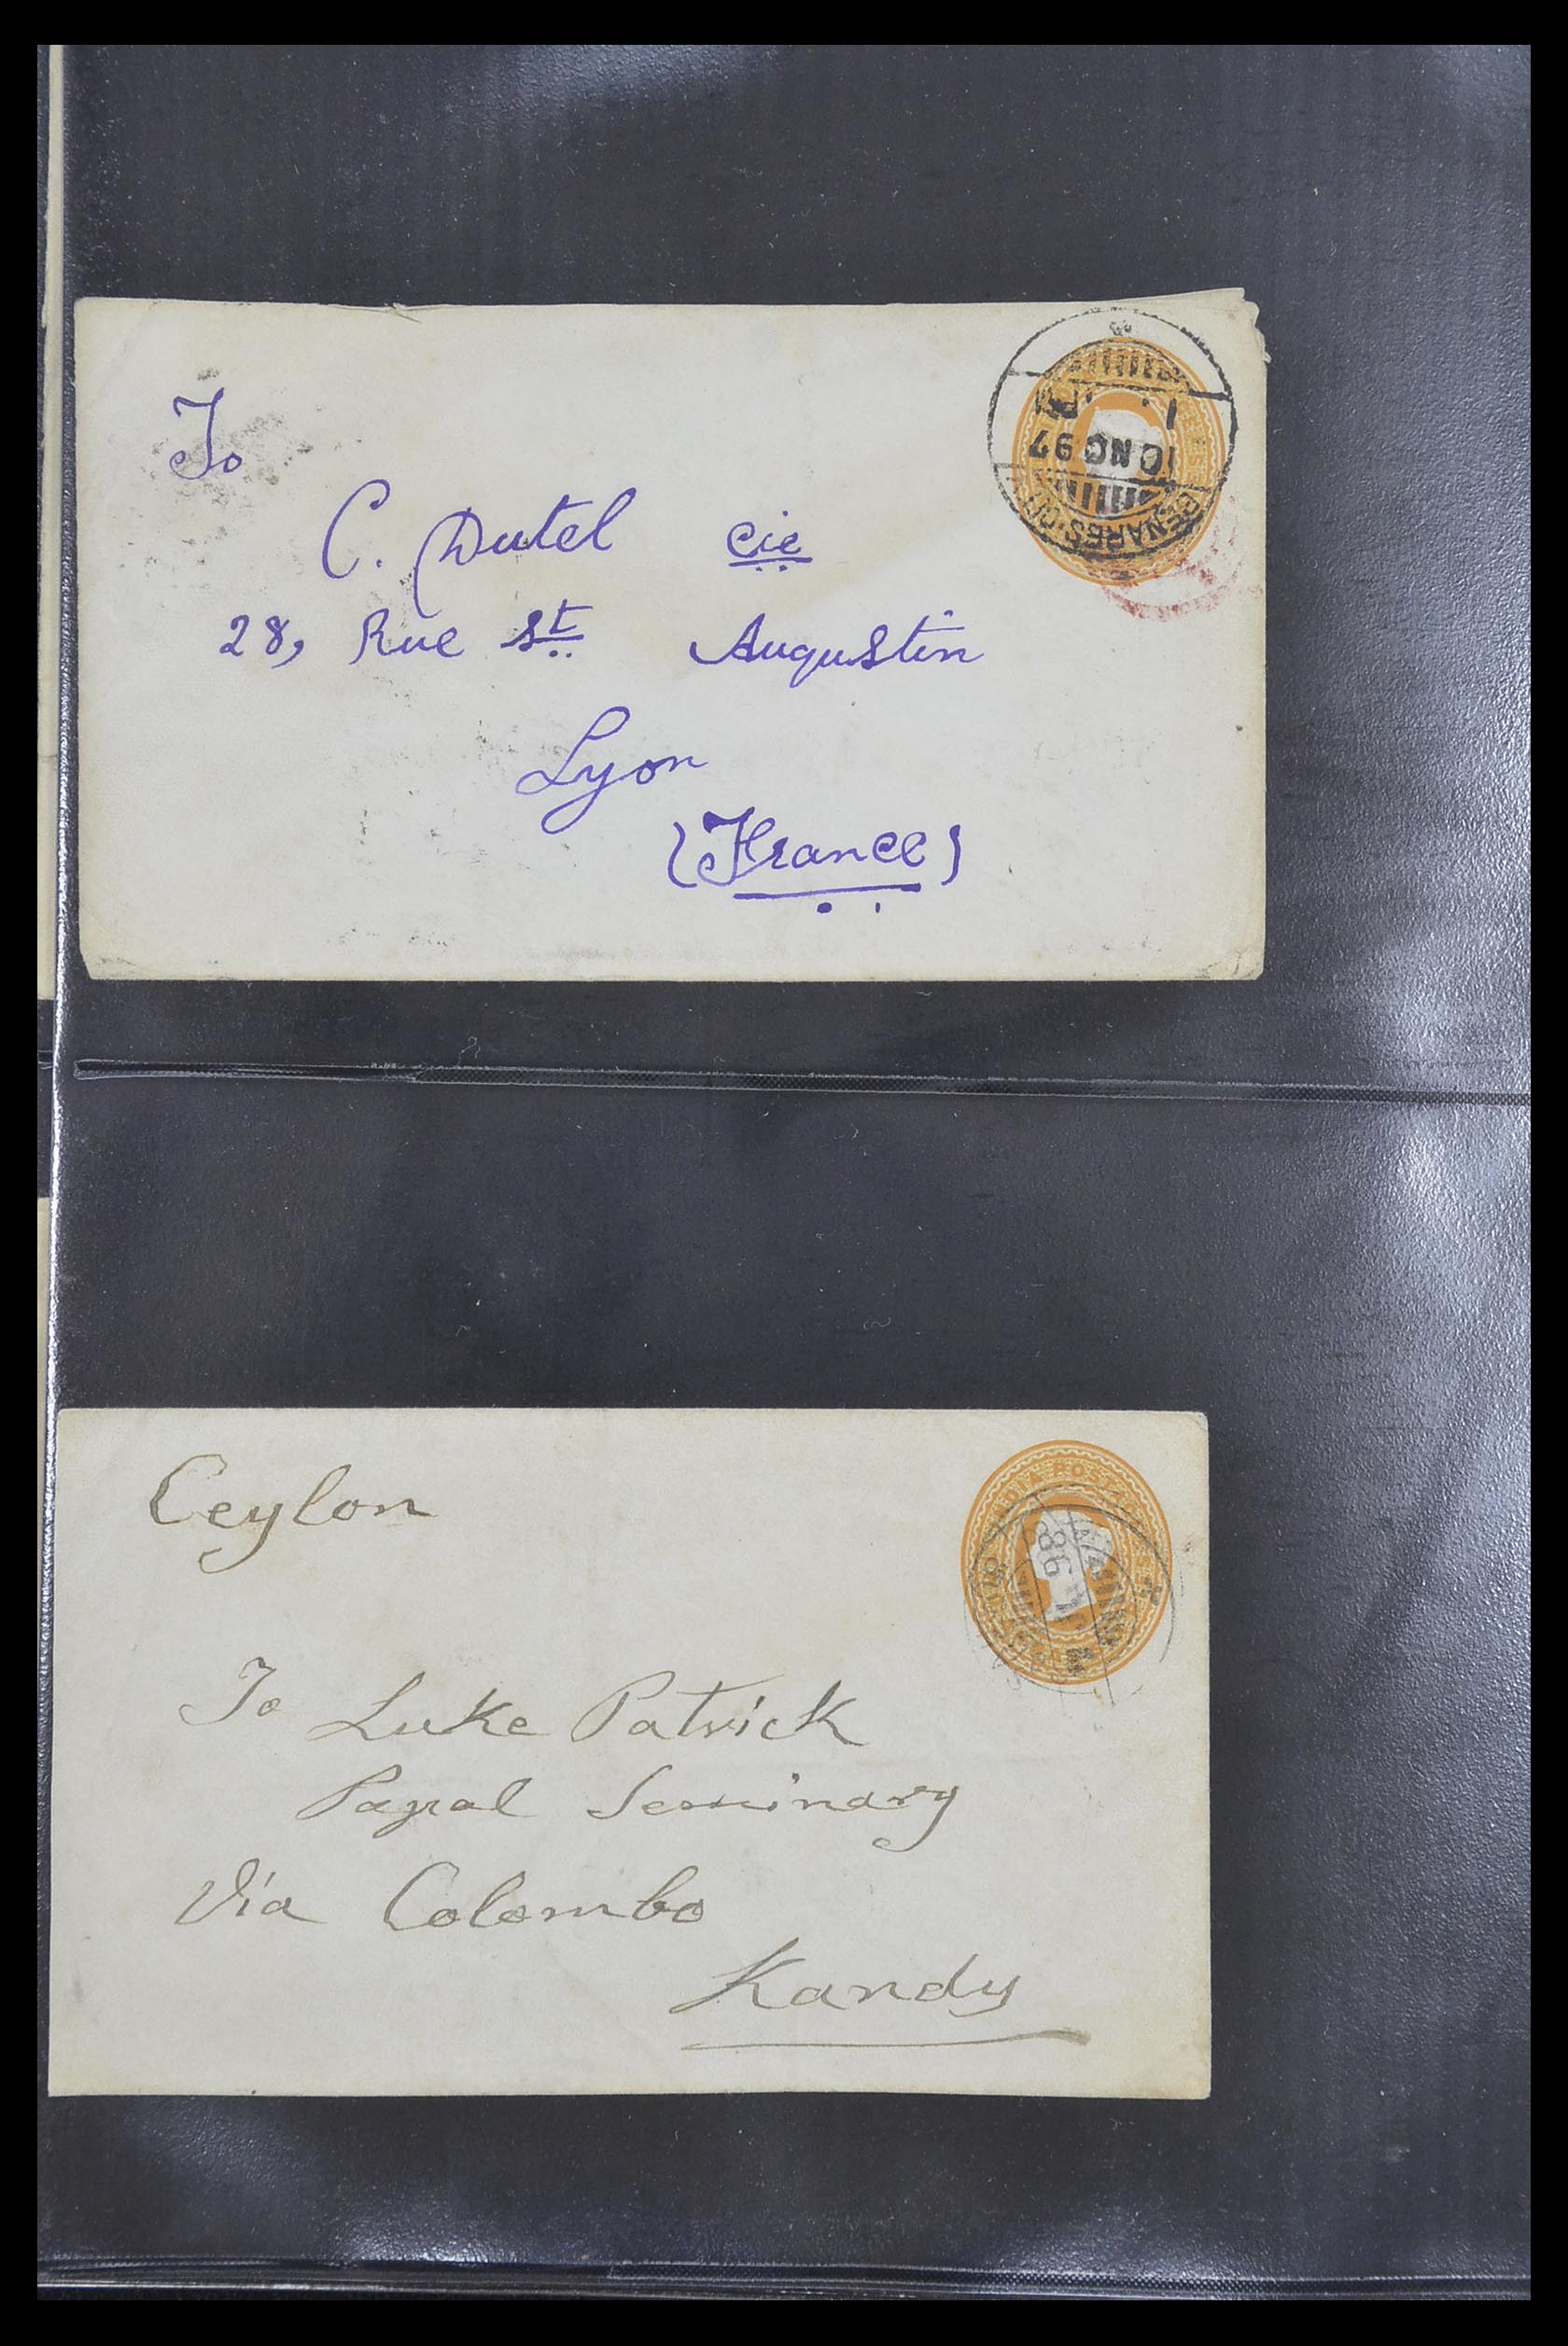 To
C. Dutel Cie
28, Rue St Augustin
Lyon
(France)
10 NO 97
BENARES
Ceylon
INDIA POSTAGE
98
To Luke Patrick
Papal Seminary
Via Colombo
Kandy